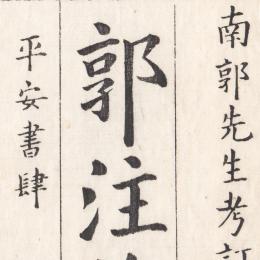 南郭先生考訂
郭注
平安書肆